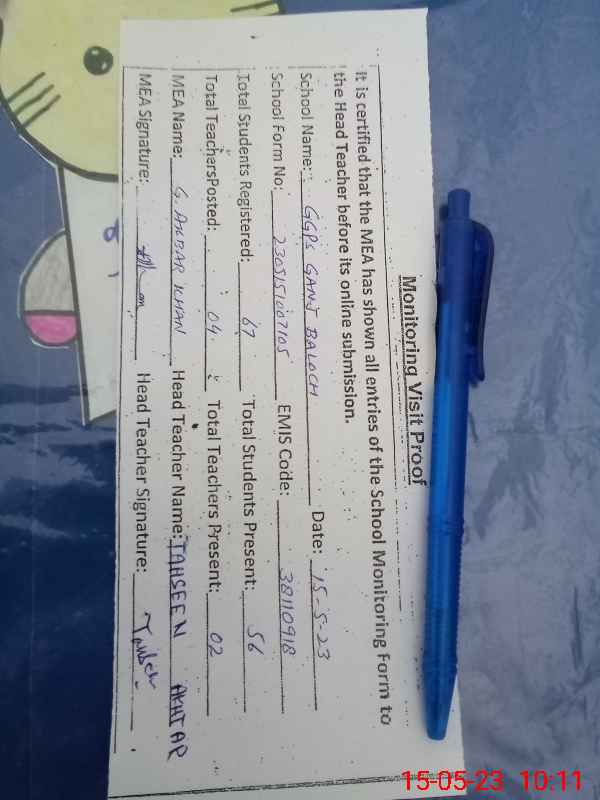 Monitoring Visit Proof
It is certified that the MEA has shown all entries of the School Monitoring Form to
the Head Teacher before its online submission.
School Name: GGPS GANJ BALOCH Date: 15-5-23
School Form No: 2305151007105 EMIS Code: 38110918
Total Students Registered: 67 Total Students Present: 56
Total TeachersPosted: 04 Total Teachers Present: 02
MEA Name: G. AKBAR KHAN Head Teacher Name: TAHSEEN AKHTAR
MEA Signature: Head Teacher Signature:
15-05-23 10:11